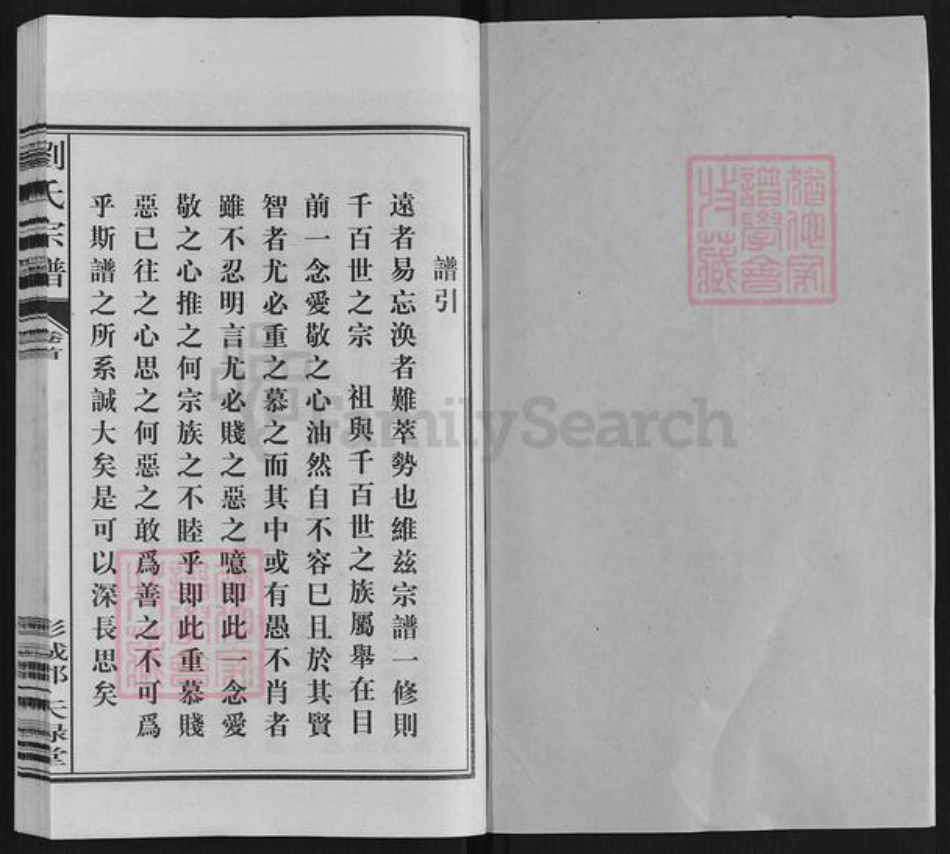 譜引
遠者易忘渙者難萃勢也維茲宗譜一修則
千百世之宗　祖與千百世之族屬舉在目
前一念愛敬之心油然自不容巳且於其賢
智者尤必重之慕之而其中或有愚不肖者
雖不忍明言尤必賤之惡之噫即此一念愛
敬之心推之何宗族之不睦乎即此重慕賤
惡已往之心思之何惡之敢爲善之不可爲
乎斯譜之所系誠大矣是可以深長思矣
劉氏宗譜
卷首
彭城郡 天祿堂
猶他家
譜學會
收藏
FamilySearch